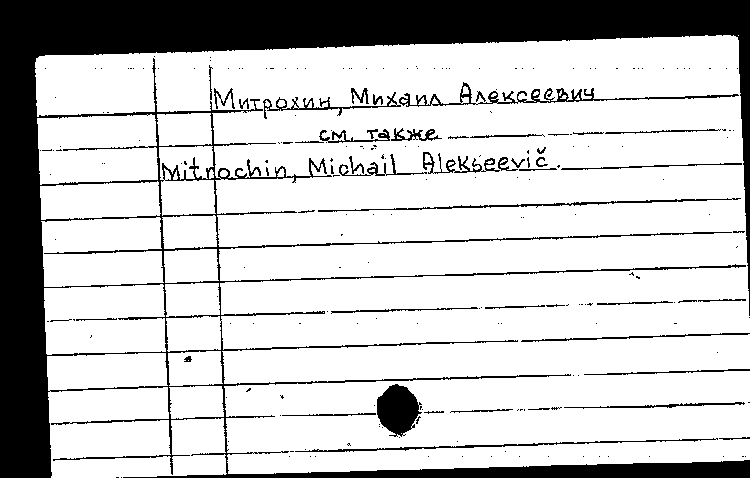 Митрохин, Михаил Алексеевич
см. также
Mitrochin, Michail Alekseevič.